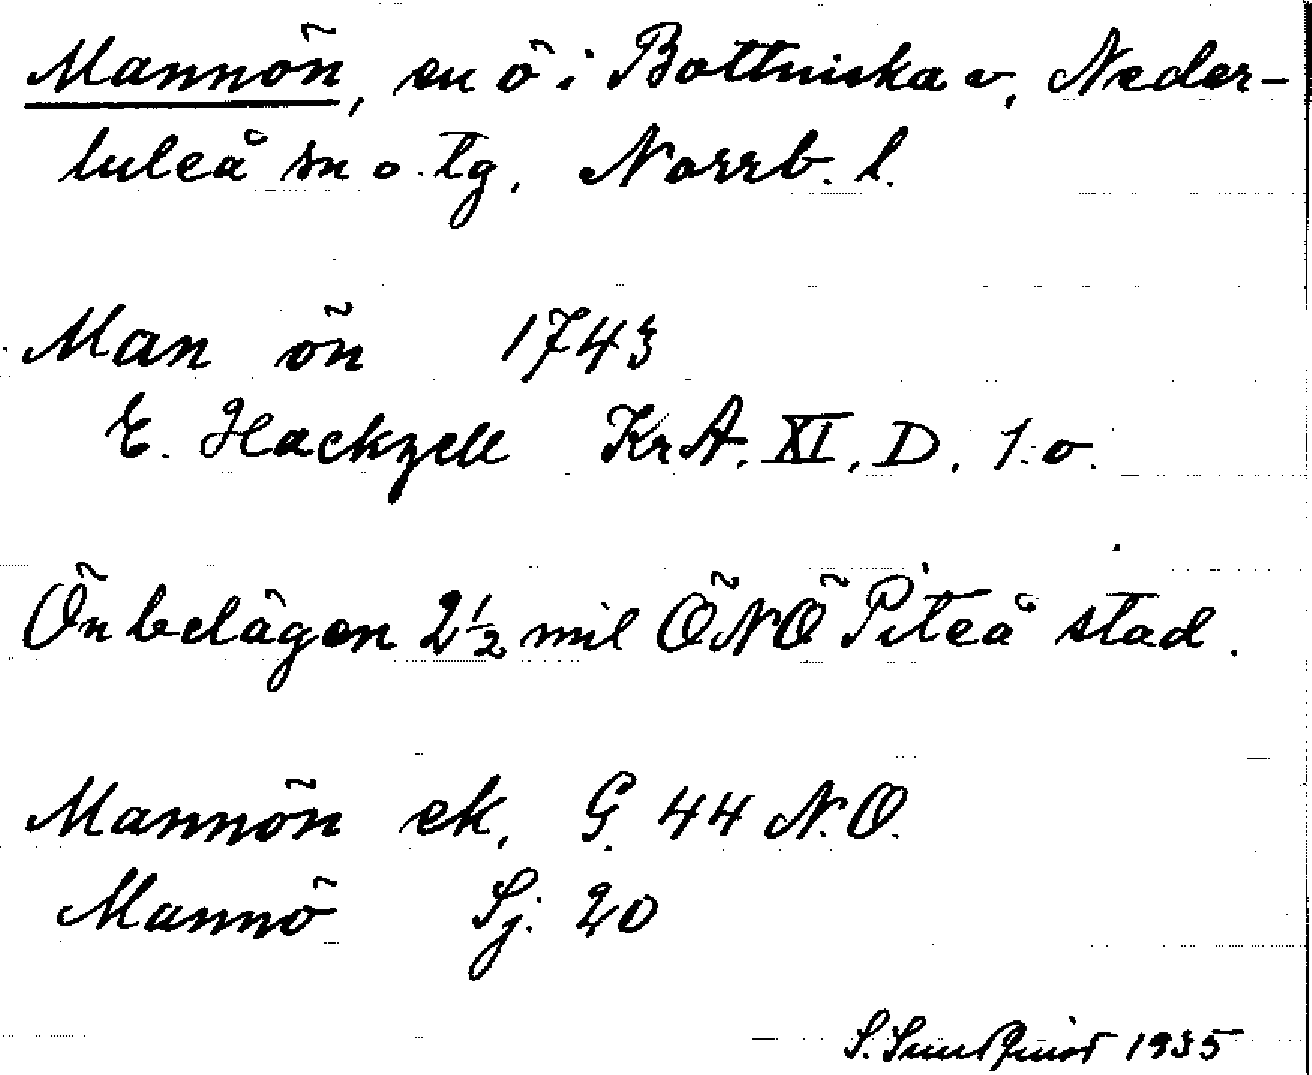 Mannön, en ö i Bottniska v, Neder-
luleå sn o. tg, Norrb. l.
Man ön 1743
E. Hackzell KrA. XI, D. 1:o.
Ön belägen 2½ mil ÖNÖ Piteå stad.
Mannön ek, G. 44 N.O.
Mannö Sj. 20
S. Sundquist 1935